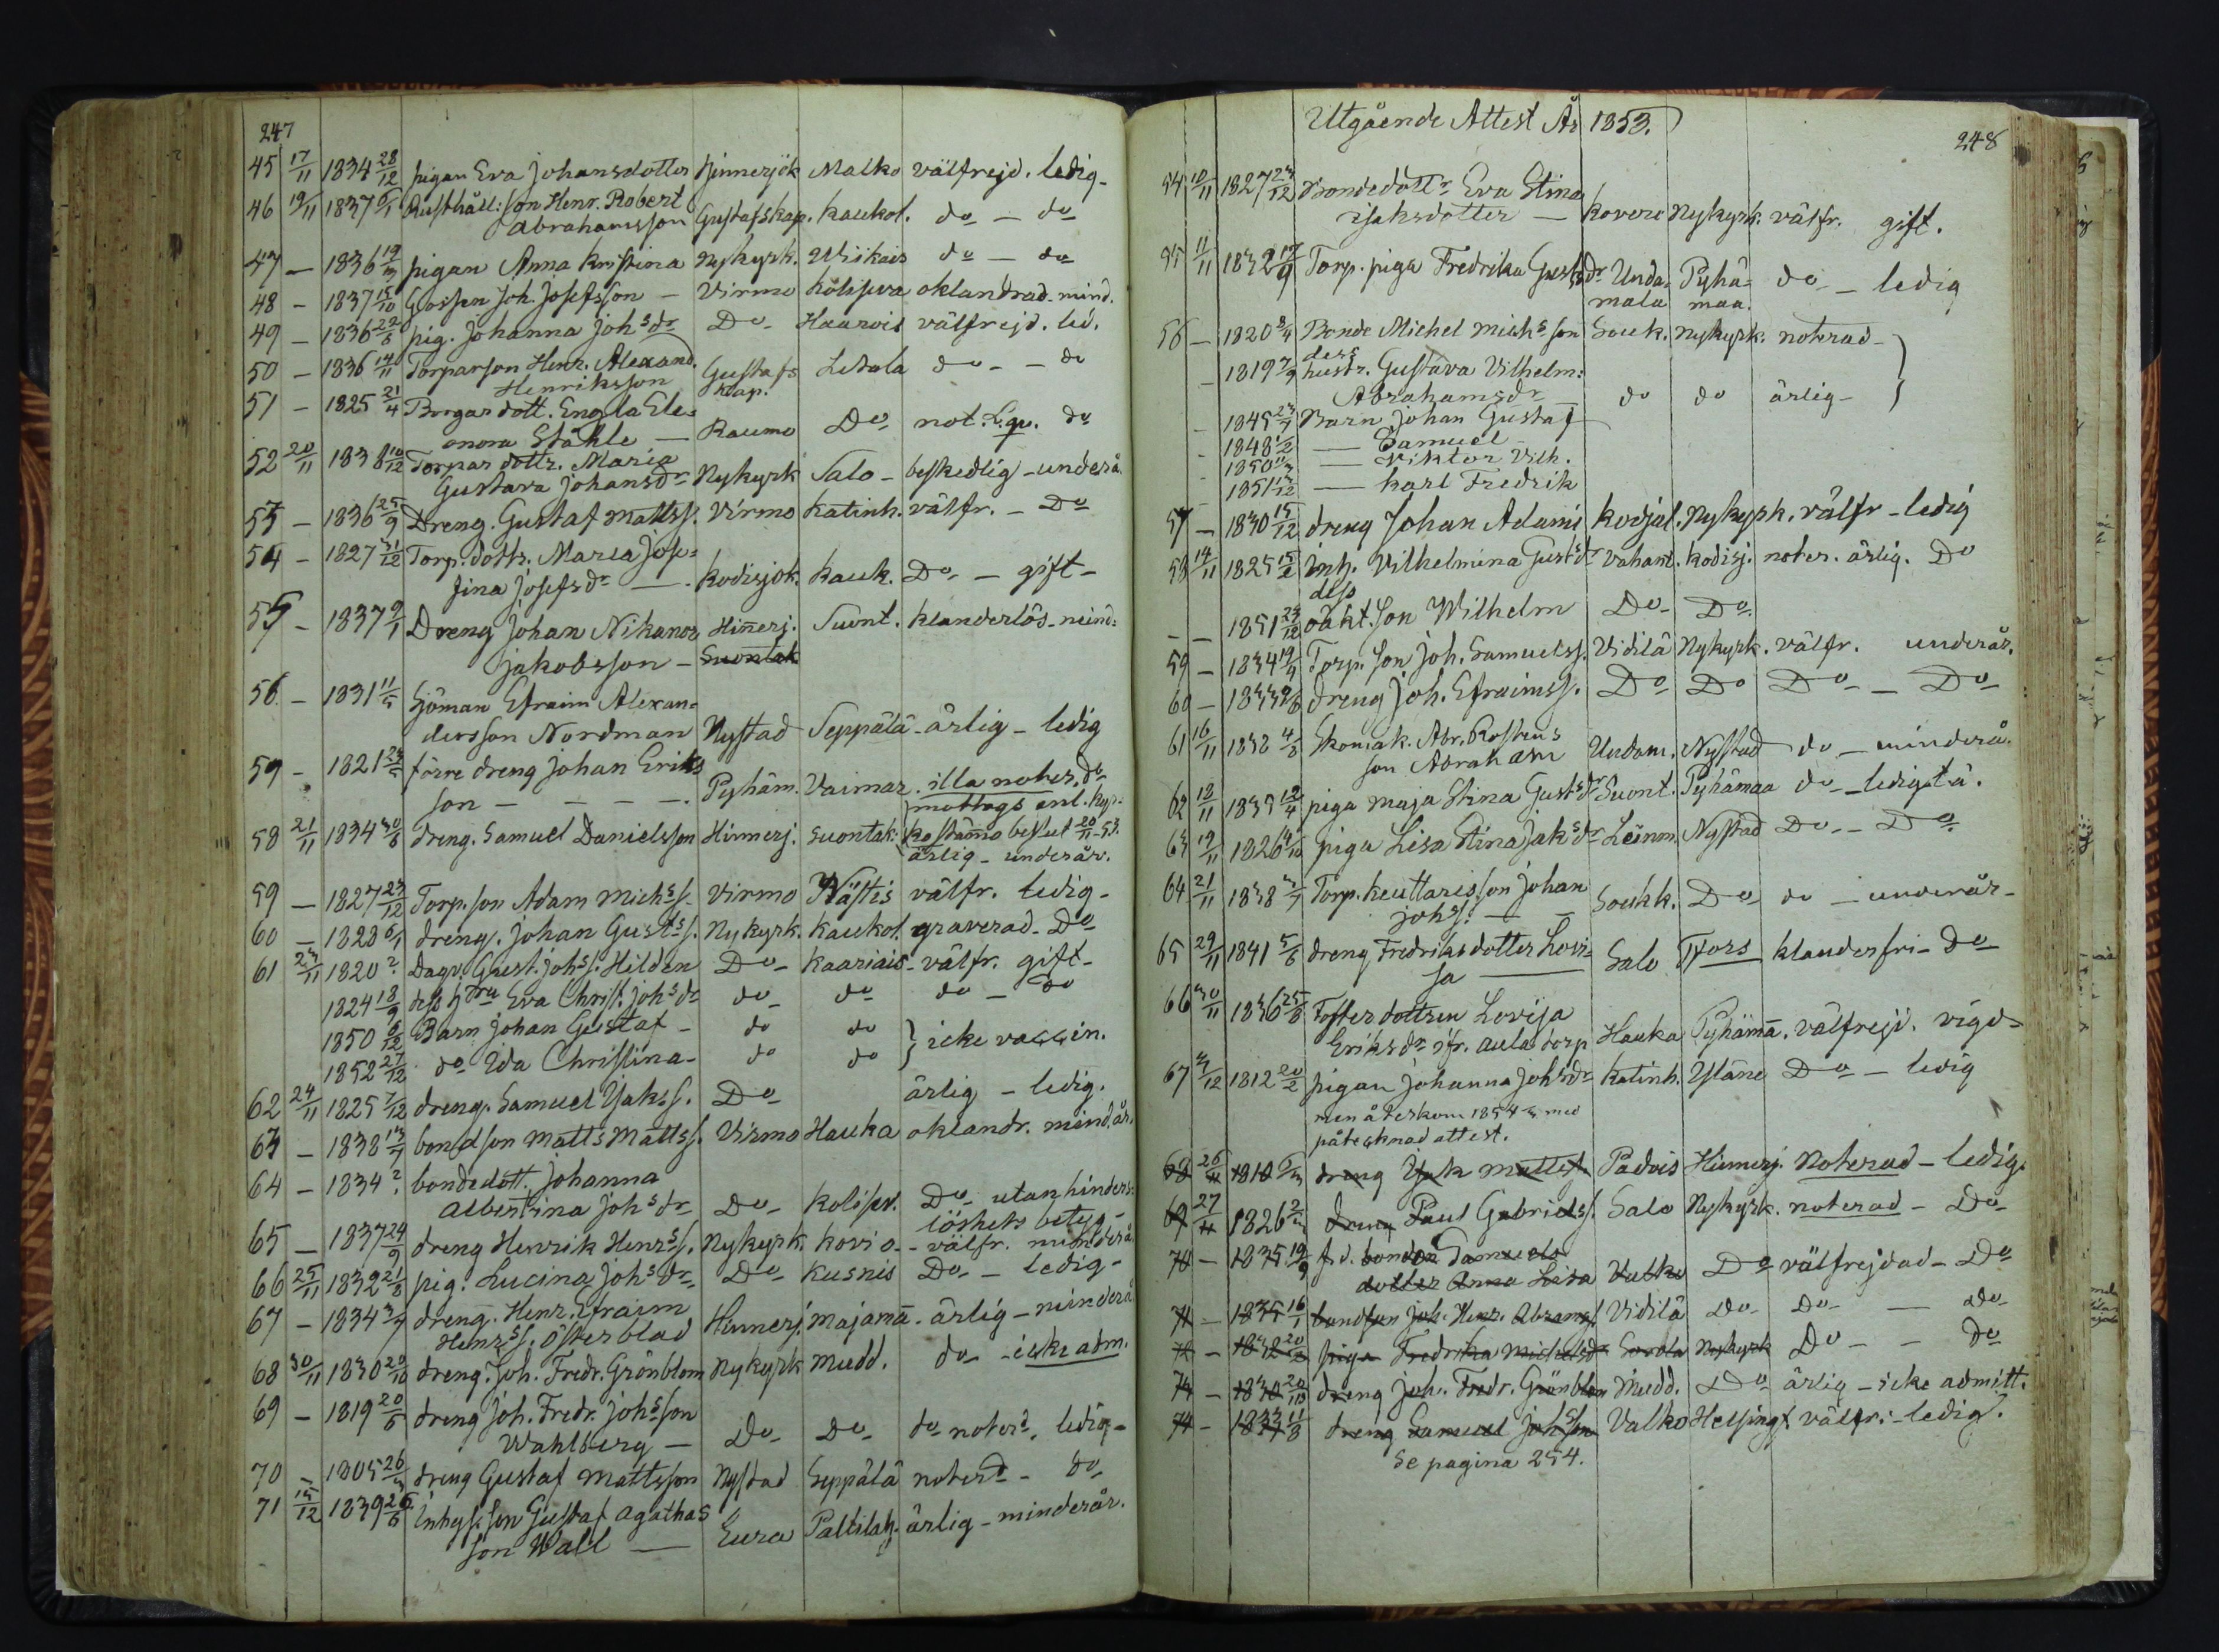 247
45 17/11 1834 28/12 pigan Eva Johansdotter Hinnerjok Malko välfrejd. ledig-
46 19/11 1837 6/1 Rusthåll: son Henr. Robert
Abrahamsson Gustafskap. Kaukol. do - do
47 - 1836 19/3 pigan Anna Kristina Nykyrk. Wiikais do - do
48 - 1837 15/10 Gossen Joh. Josefsson - Virmo Koliseva oklandrad. mind.
49 - 1836 22/6 pig. Johanna Johsdr Do- Haarois välfrejd. led.
50 - 1836 14/11 Torparson Henr. Alexand.
Henriksson Gustafs kap. Letsala do - - do
51 - 1825 21/4 Borgar dott. Engla Ele=
onora Ståhle - Raumo Do not. L:qv. do
52 20/11 1838 10/12 Torpar dottr. Maria
Gustava Johansdr Nykyrk Salo - beskedlig - underå.
53 - 1836 25/9 Dreng. Gustaf Mattss. Virmo Katinh. välfr. - Do
54 - 1827 31/12 Torp. dottr. Maria Jose=
fina Josefsdr - Kodisjok. Kauk. Do - gift-
55 - 1837 9/1 Dreng Johan Nikanor Hinnerj. Suont. klanderlös- mind=
Jakobsson - Suontak
56 - 1831 11/5 Sjöman Efraim Alexan=
dersson Nordman Nystad Seppälä - ärlig - ledig
59 - 1821 förre dreng Johan Eriks
son - - - -. Pyhäm. Vaimar. illa noter. do
mottogs enl. kyr-
58 21/11 1834 30/6 dreng. Samuel Danielsson Hinnerj. Suontak. kostämo beslut 20/11-53.
ärlig - underår.
59 - 1827 23/12 Torp. son Adam Michss. Virmo Nästis välfr. ledig-
60 - 1828 6/1 dreng. Johan Gustss. Nykyrk. Kaukol. graverad- Do
61 23/11 1820 ? Dagv. Gust. Johss. Hilden Do- Kaariais- välfr. gift-
1824 18/9 dess hru Eva Christ. Johsdr do do do - do
1850 6/12 Barn Johan Gustaf - do do } icke vaccin.
1852 27/12 do Ida Christina- do do
62 24/11 1825 7/12 dreng. Samuel Jakss. Do ärlig - ledig.
63 - 1838 13/7 bondson Matts Mattss. Virmo Hauka oklandr. mind.år.
64 - 1834 ? bondedott. Johanna
Albertina Johsdr Do- Kolisev. Do utan hinders=
löshets betyg-
65 - 1837 24/9 dreng Henrik Henrss. Nykyrk. Kovio- - välfr. minderå
66 25/11 1832 21/8 pig. Lucina Johsdr- Do- Kusnis Do - ledig-
67 - 1834 3/7 dreng. Henr. Efraim
Henrss. Österblad Hinnerj. Majama. ärlig - minderå
68 30/11 1830 20/10 dreng. Joh. Fredr. Grönblom Nykyrk Mudd. do - icke adm.
69 - 1819 20/6 dreng Joh. Fredr. Johsson
Wahlberg - Do- Do- do noterd. ledig-
70 - 1805 26/3 dreng Gustaf Mattsson Nystad Seppälä noterd - do
71 15/12 1839 26/6 Inhys. son Gustaf Agathas
son Wall - Eura Paltilah. ärlig - minderår.
Utgående Attest År 1853.
248
54 10/11 1827 23/12 Bondedottr Eva Stina
Isaksdotter - Kovero Nykyrk. välfr. gift.
55 11/11 1832 17/9 Torp. piga Fredrika Gustsdr Unda= Pyhä= do - ledig
mala maa.
56 - 1820 8/4 Bonde Michel Michsson Souk. Nykyrk. noterad-
dess
- 1819 7/9 hustr. Gustava Vilhelm:
Abrahamsdr - do do ärlig-
- 1845 23/7 Barn Johan Gustaf
- 1848 1/2 - Samuel -
- 1850 11/3 - Viktor Vilh.
- 1851 13/12 - Karl Fredrik
57 - 1830 15/12 dreng Johan Adams Kodjal. Nykyrk. välfr - ledig
58 14/11 1825 15/2 inh. Vilhelmina Gustsdr Vahant. Kodisj. noter. ärlig. Do
dess
- - 1851 24/12 oäkt. Son Wilhelm Do- Do
59 - 1834 19/9 Torp. son Joh. Samuelss. Vidilä Nykyrk. välfr. underår.
60 - 1833 9/6 dreng Joh. Efraimss. Do Do Do - Do
61 16/11 1832 4/8 Skomak. Abr. Rostens
son Abraham Undam. Nystad do - minderå.
62 18/11 1835 12/4 piga Maja Stina Gustsdr Suont. Pyhämaa do - ledigtä.
63 19/11 1826 4/10 piga Lisa Stina Jaksdr Leinm. Nystad Do - Do
64 21/11 1838 3/7 Torp. Keuttaris son Johan
Johss. - - Soukk. Do do - underår-
65 29/11 1841 5/6 dreng Fredriksdotter Lovi=
sa - Salo Tfors klanderfri- do
66 30/11 1836 25/8 Foster dottren Lovisa
Eriksdr ifr. Aula torp Hauka Pyhämä. välfrejd. vigd-
67 4/12 1812 20/2 pigan Johanna Johsdr Katinh. Yläne Do - ledig
men återkom 1854 med
påtecknad attest.
68 26/11 1810 dreng Jak Mattss. Padois Hinnerj. Noterad - ledig.
69 27/11 1826 dreng Paul Gabrielss. Salo Nykyrk. noterad - Do
70 - 1835 19/9 f.d. bonden Samuels
dotter Anna Lisa Valko Do välfrejdad - Do
71 - 1835 16/1 bondson Joh. Henr. Abramss. Vidilä Do Do - do
72 - 1832 20/2 piga Fredrika Michelsdr Sorola Nykyrk Do - - do
74 - 1830 20/10 dreng Joh. Fredr. Grönblom Mudd. Do ärlig - icke admitt.
74 - 1837 11/8 dreng Samuel Johsson Valko Helsingf. välfr:- ledig.
Se pagina 254.